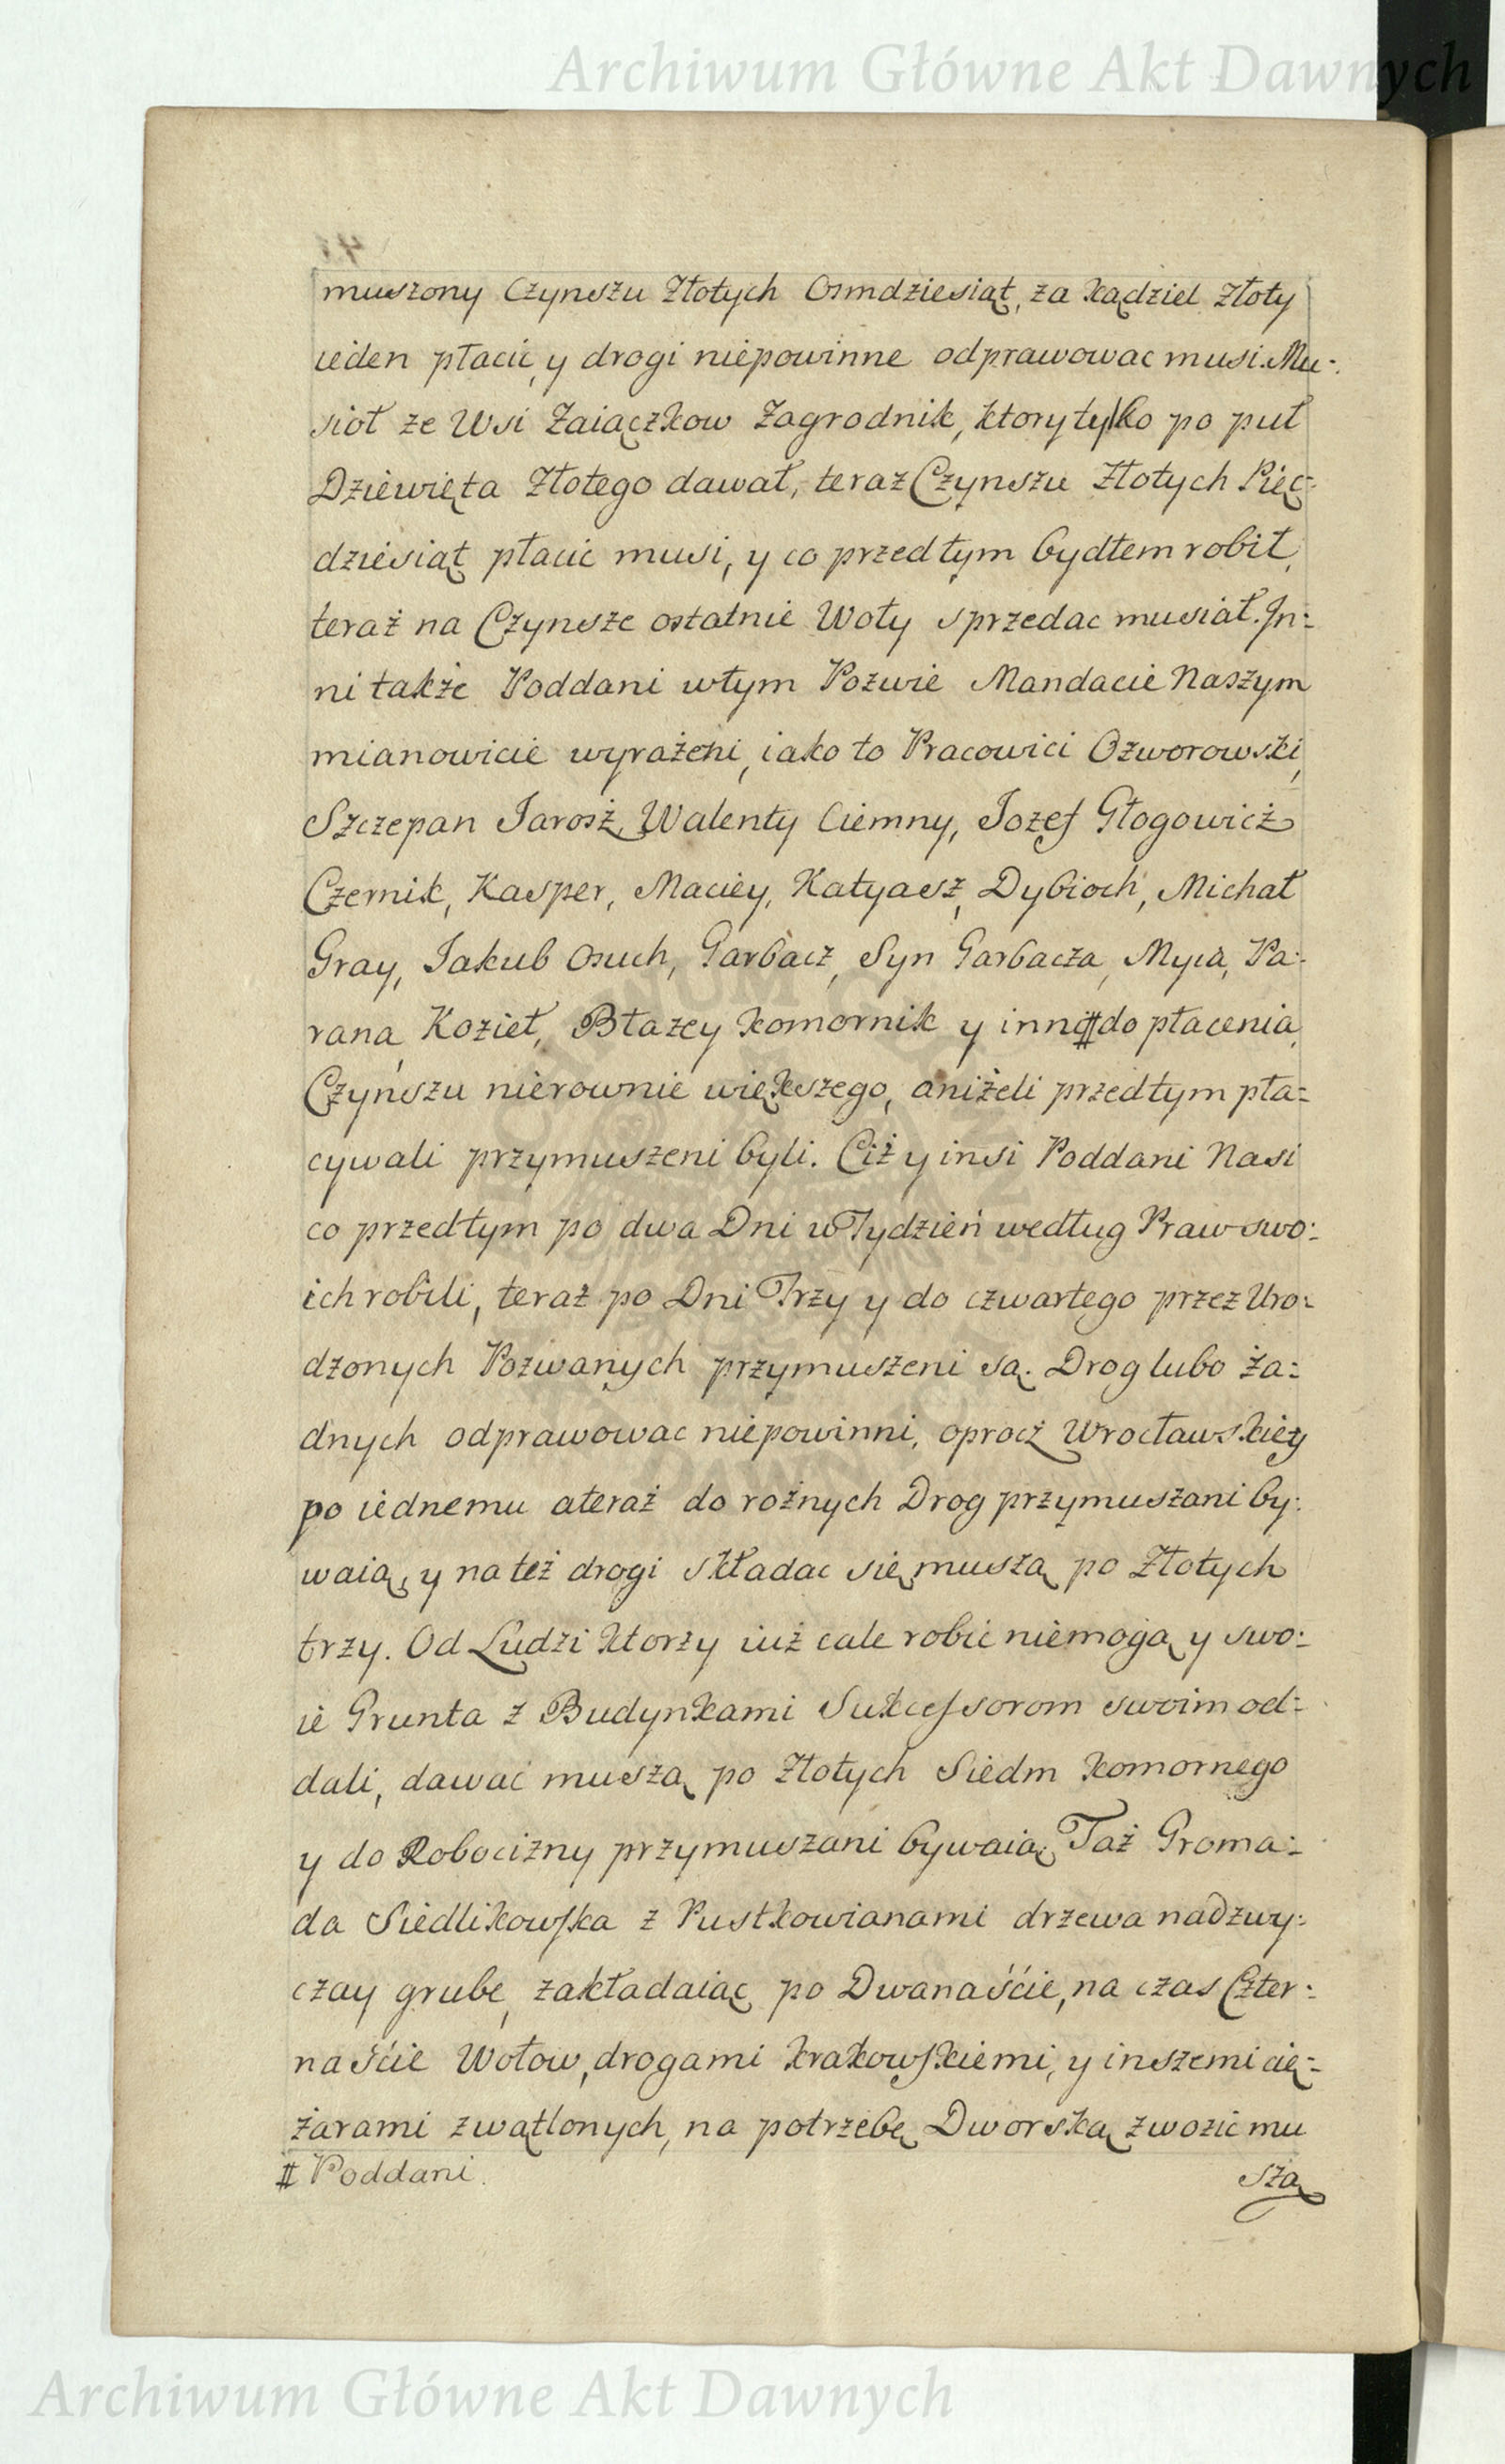 Archiwum Główne Akt Dawnych
muszony Czynszu Złotych Osmdziesiąt, za kądziel złoty
ieden płacic, y drogi niepowinne odprawowac musi. Mu-
sioł ze Wsi Zaiączkow Zagrodnik, ktory tylko po puł
Dziewięta Złotego dawał, teraz Czynszu Złotych Pięc-
dziesiąt płacic musi, y co przed tym bydłem robił,
teraż na Czynsze ostatnie Woły sprzedac musiał. In-
ni także Poddani w tym Pozwie Mandacie Naszym
mianowicie wyrażeni, iako to Pracowici Ozworowski,
Szczepan Jarosż, Walenty Ciemny, Jozef Głogowicż
Czernik, Kasper, Maciey, Katyasz, Dybioch, Michał
Gray, Jakub Osuch, Garbacz, Syn Garbacza, Myca, Pa-
rana, Kozieł, Błażey komornik y inni # do płacenia
Czynszu nierownie większego, aniżeli przedtym pła-
cywali przymuszeni byli. Ciż y insi Poddani Nasi
co przedtym po dwa Dni w Tydzień według Praw swo-
ich robili, teraż po Dni Trzy y do czwartego przez Uro-
dzonych Pozwanych przymuszeni są. Drog lubo ża-
dnych odprawowac niepowinni, oprocż Wrocławskiey
po iednemu a teraż do rożnych Drog przymuszani by-
waią, y na też drogi składac się muszą po Złotych
trzy. Od Ludzi ktorzy iuż cale robic niemogą y swo-
ie Grunta z Budynkami Sukcessorom swoim od-
dali, dawać muszą po Złotych Siedm komornego
y do Robocizny przymuszani bywaią. Taż Groma-
da Siedlikowska z Pustkowianami drzewa nadzwy-
czay grube, zakładaiąc po Dwanaście, na czas Czter-
naście Wołow, drogami krakowskiemi, y inszemi cię-
żarami zwątlonych, na potrzebę Dworską zwozic mu
# Poddani.
szą
Archiwum Główne Akt Dawnych